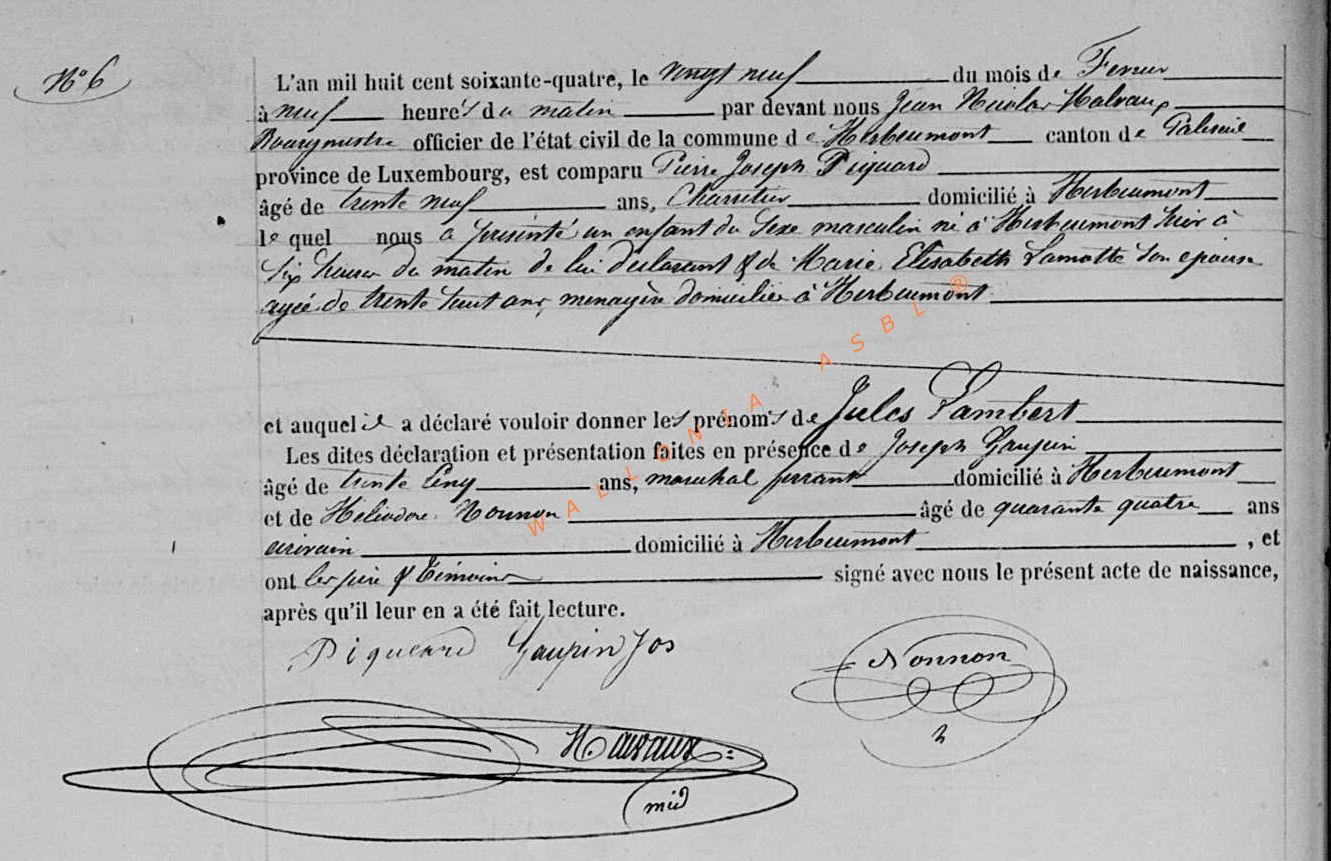 N° 6
L'an mil huit cent soixante-quatre, le vingt neuf du mois de Fevrier
à neuf heures du matin par devant nous Jean Nicolas Halvaux
Bourgmestre officier de l'état civil de la commune de Herbeumont canton de Paliseul
province de Luxembourg, est comparu Pierre Joseph Piquard
âgé de trente neuf ans, Charretier domicilié à Herbeumont
lequel nous a présenté un enfant du sexe masculin né à Herbeumont hier à
six heures du matin de lui déclarant & de Marie Elisabeth Lamotte son epouse
agée de trente huit ans, menagère domiciliée à Herbeumont
et auquel il a déclaré vouloir donner les prénoms de Jules Lambert
Les dites déclaration et présentation faites en présence de Joseph Gaupin
âgé de trente cinq ans, maréchal ferrant domicilié à Herbeumont
et de Héliodore Nonnon âgé de quarante quatre ans
écrivain domicilié à Herbeumont, et
ont les père & témoins signé avec nous le présent acte de naissance,
après qu'il leur en a été fait lecture.
Piqueard Gaupin Jos
Nonnon
Halvaux
WALLONIA ASBL ®